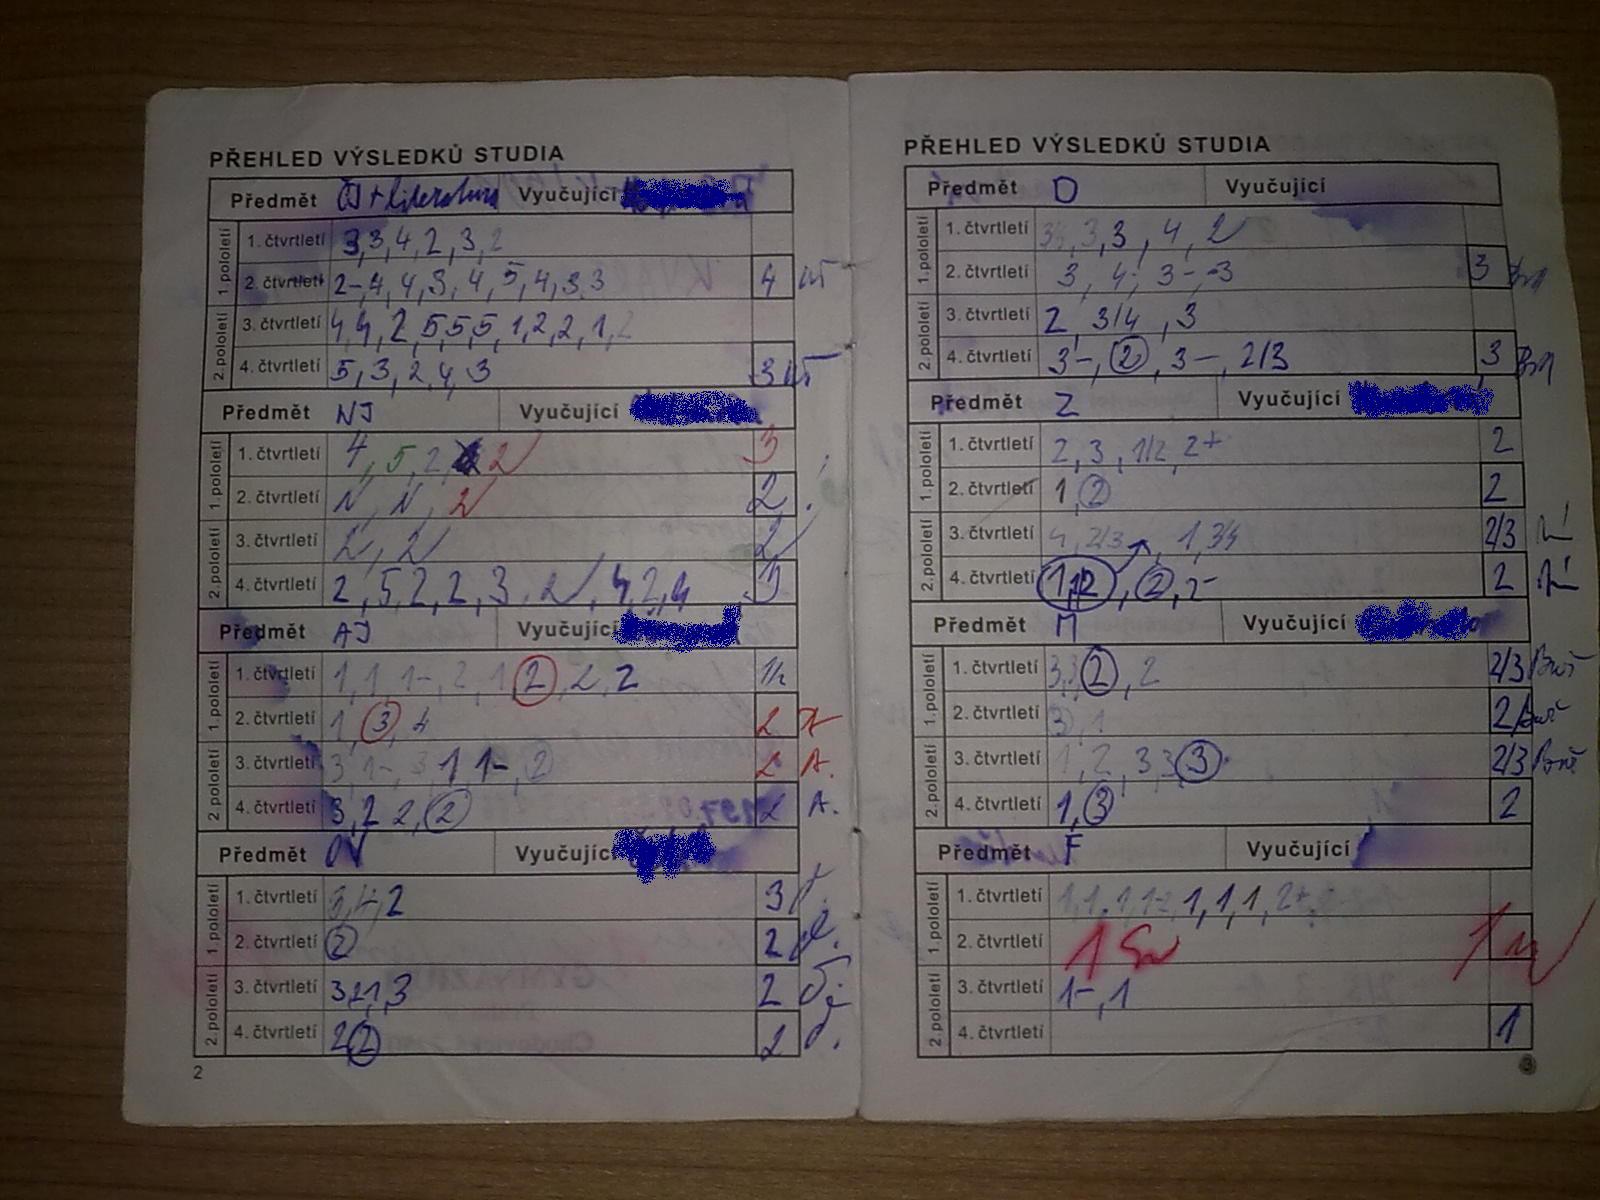 PŘEHLED VÝSLEDKŮ STUDIA
Předmět ČJ + literatura Vyučující
1. pololetí
1. čtvrtletí 3, 3, 4, 2, 3, 2
2. čtvrtletí 2-, 4, 4, 3, 4, 5, 4, 3, 3 4
2. pololetí
3. čtvrtletí 4, 4, 2, 5, 5, 5, 1, 2, 2, 1, 2
4. čtvrtletí 5, 3, 2, 4, 3 3
Předmět NJ Vyučující
1. pololetí
1. čtvrtletí 4, 5, 2, 2 3
2. čtvrtletí 2 2
2. pololetí
3. čtvrtletí 2, 2 2
4. čtvrtletí 2, 5, 2, 2, 3, 2, 4, 2, 4 3
Předmět AJ Vyučující
1. pololetí
1. čtvrtletí 1, 1, 1-, 2, 1, 2, 2, 2 1/2
2. čtvrtletí 1, 3, 4 2
2. pololetí
3. čtvrtletí 3, 1-, 3, 1, 1-, 2 2 A.
4. čtvrtletí 3, 2, 2, 2 2 A.
Předmět OV Vyučující
1. pololetí
1. čtvrtletí 3, 4, 2 3
2. čtvrtletí 2 2
2. pololetí
3. čtvrtletí 3, 1, 3 2
4. čtvrtletí 2, 2 2
2
PŘEHLED VÝSLEDKŮ STUDIA
Předmět D Vyučující
1. pololetí
1. čtvrtletí 3, 3, 4, 2
2. čtvrtletí 3, 4, 3-, -3 3
2. pololetí
3. čtvrtletí 2, 3/4, 3
4. čtvrtletí 3-, 2, 3-, 2/3 3
Předmět Z Vyučující
1. pololetí
1. čtvrtletí 2, 3, 1/2, 2+ 2
2. čtvrtletí 1, 2 2
2. pololetí
3. čtvrtletí 4, 2/3, 1, 3/4 2/3
4. čtvrtletí 1, 2, 2, 2- 2
Předmět M Vyučující
1. pololetí
1. čtvrtletí 3, 3, 2, 2 2/3
2. čtvrtletí 3, 1 2
2. pololetí
3. čtvrtletí 1, 2, 3, 3, 3 2/3
4. čtvrtletí 1, 3 2
Předmět F Vyučující
1. pololetí
1. čtvrtletí 1, 1, 1, 1, 1, 1, 1, 2+
2. čtvrtletí 1 1
2. pololetí
3. čtvrtletí 1-, 1
4. čtvrtletí 1
3